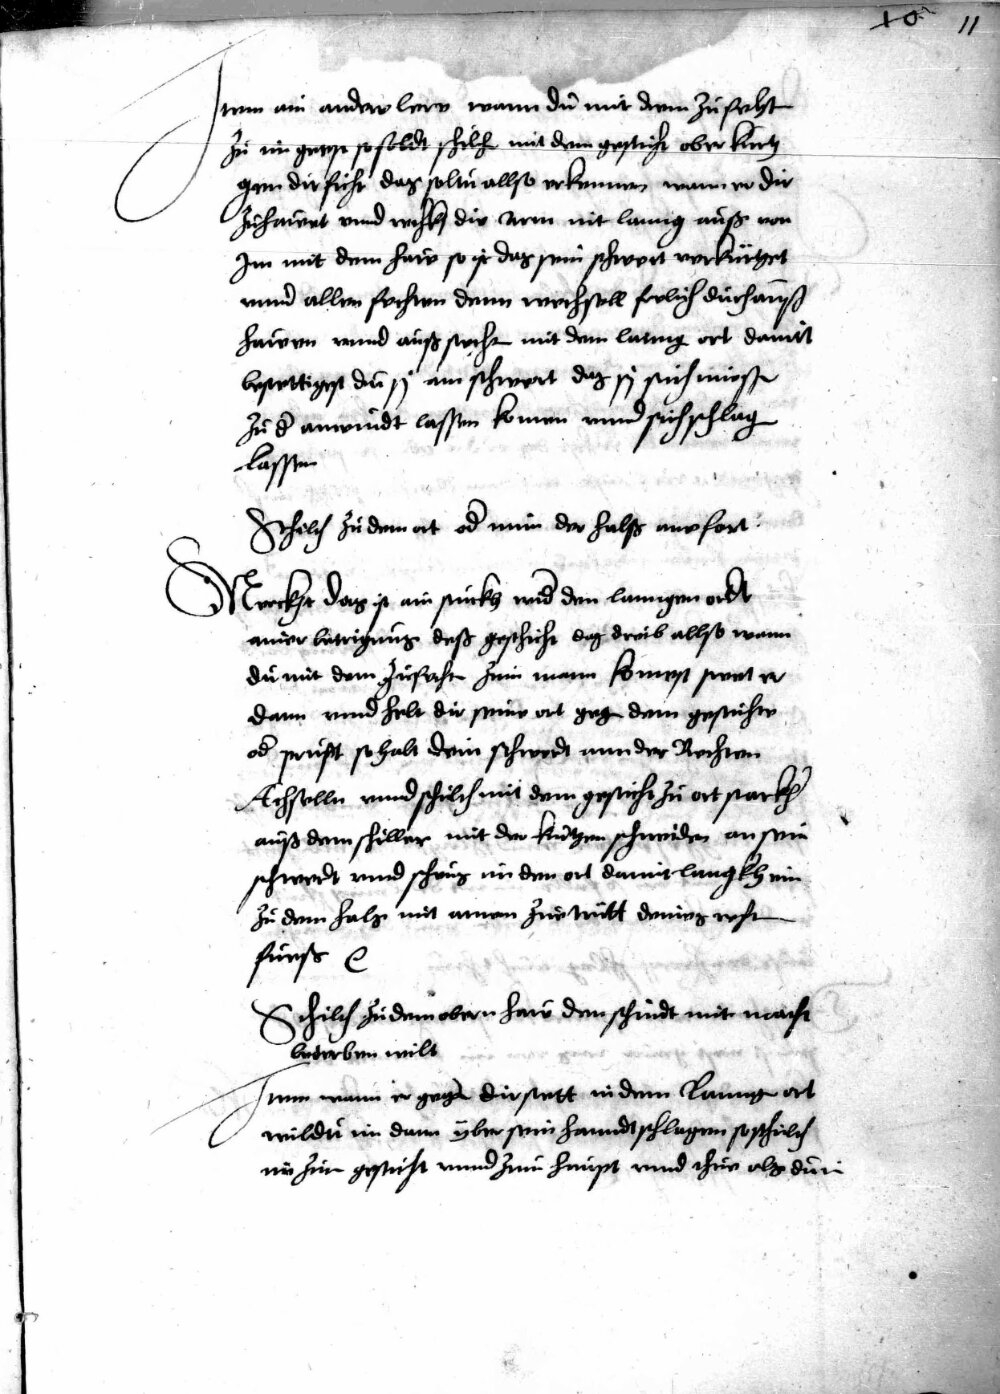 10 11
Item ain andere lere wann du mit dem zufecht
zu im geest so soldt schilh mit dem gesicht ober kurtz
gen dir ficht das soltu allso erkennen wann er dir
zuhawet vnnd reckht die Arm nit lanng auß von
Im mit dem haw so ist das sein schwert verkürtzet
vnnd allen fechten denn wechsell frelich durch auß
hawen vnnd auß stechen mit dem lanng ort damit
bestettigest du sy am schwert das sy sich muessen
zu d anwindt lassen komen vnnd sich schlag
lassen
Schilch zu dem ort od nim der halß ane fort
Merckht das ist ain stuckh wid den lanngen ordt
ainer betriegnus deß gesichtz das dreib allso wann
du mit dem zufechten zum mann komest stett er
dann vnnd helt dir seine ort geg dem gesichte
od prust so halt dein schwerdt ann der Rechten
Achselln vnnd schilch mit dem gesicht zu ort starckh
auß dem schiller mit der kurtzen schneiden an sein
schwerdt vnnd scheus im den ort damit langkh ein
zu dem halz mit ainen zue tritt deines recht
fueß
Schilch zu dem obern haw den schindt mit macht
bederben wilt
Item wann er gegn dir stett in dem Lanng ort
wildu im dann yber sein hanndt schlagen so schilch
im zum gesicht vnnd zum haupt vnnd thue als du in